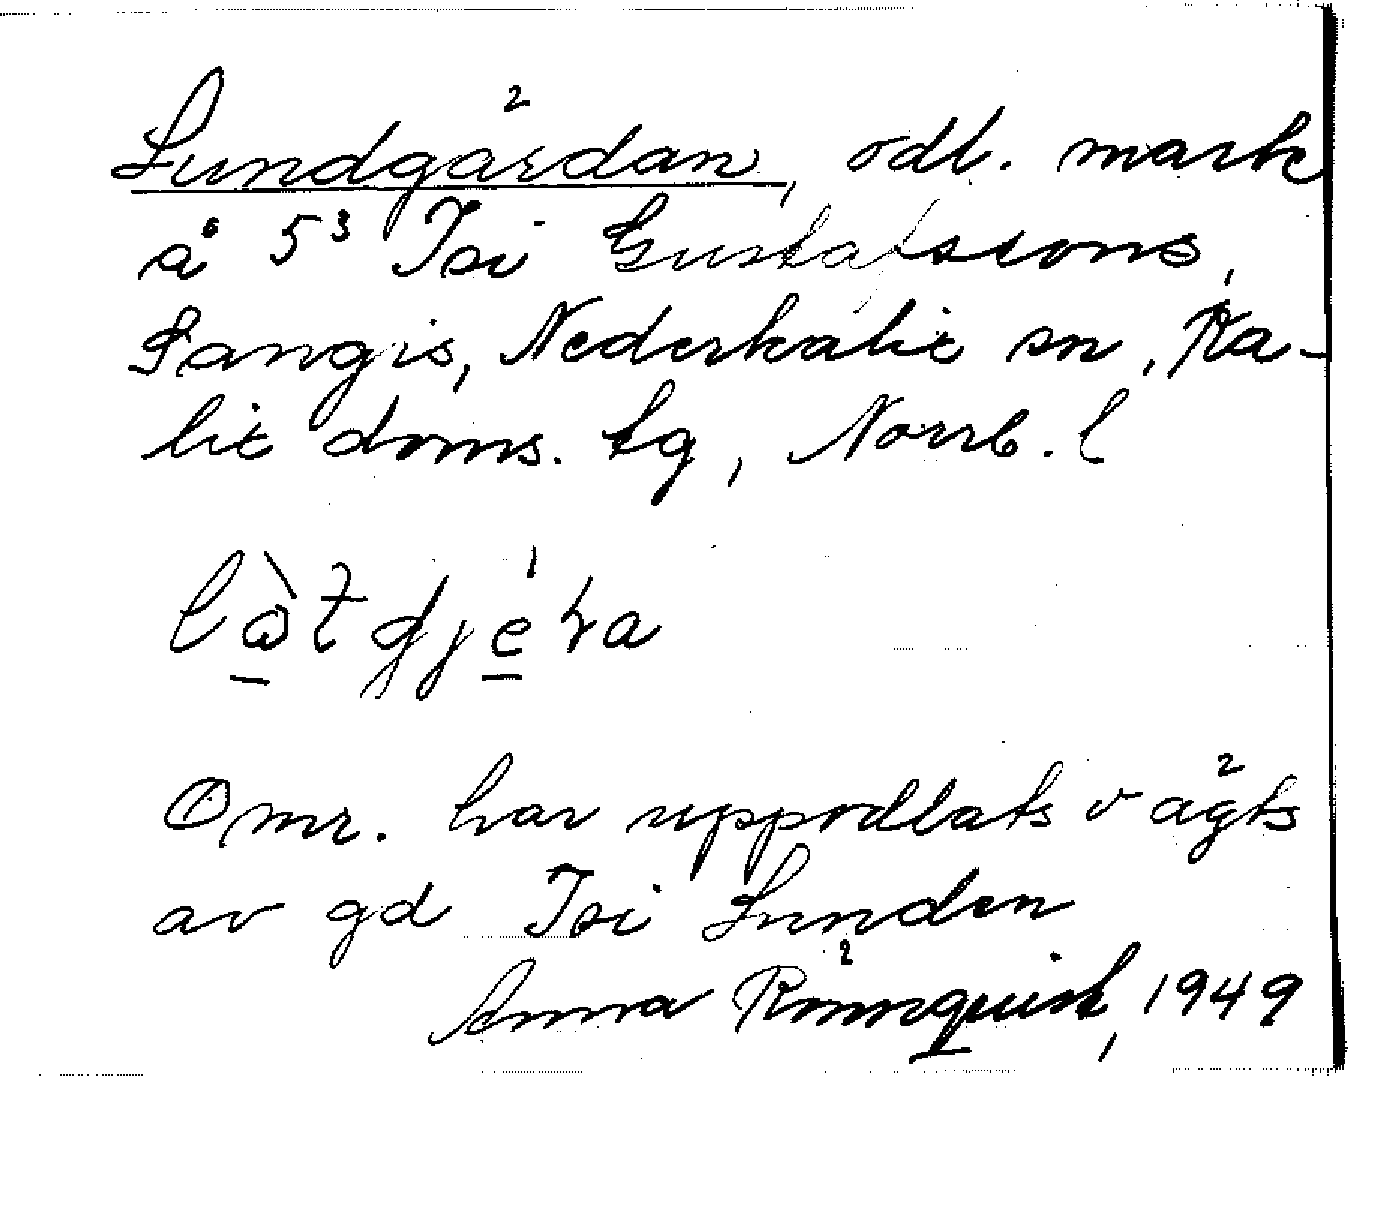 Lundgärdan, odl. mark
å 5³ Isi Gustafssons,
Sangis, Nederkalix sn, Ka-
lix doms. tg, Norrb. l
Omr. har uppodlats o ägts
av gd Isi Lunden
Anna Rönnquist, 1949